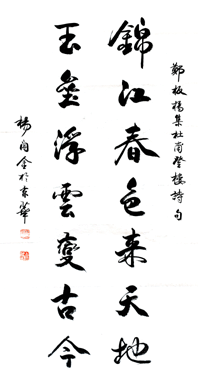 鄭板橋集杜甫登樓詩句
錦江春色來天地
玉壘浮雲變古今